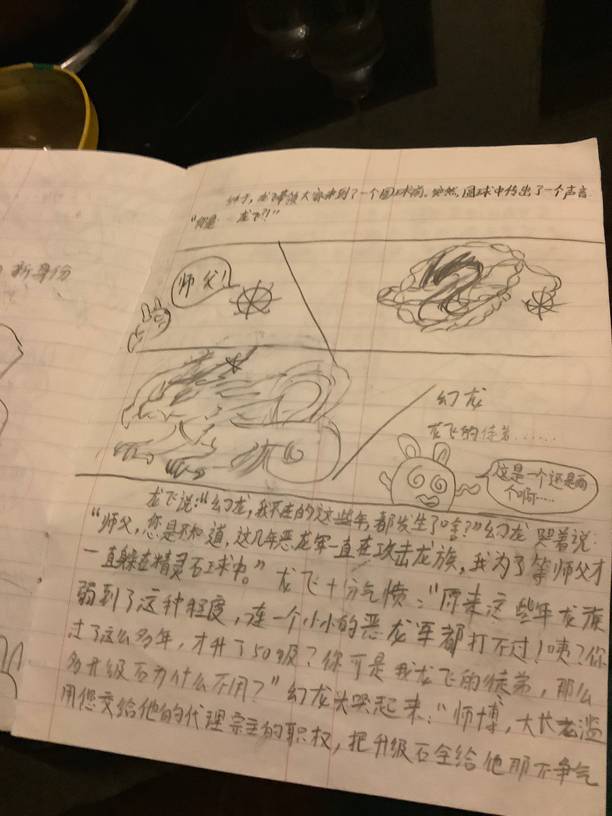 龙飞带领大家来到了一个圆球前。突然,圆球中传出了一个声音
龙飞?!”
新身份
师父!
幻龙
龙飞的徒弟……
这是一个还是两
个啊……
龙飞说:“幻龙,我不在的这些年,都发生了啥?”幻龙哭着说:
“师父,您是不知道,这几年恶龙军一直在攻击龙族,我为了等师父才
一直躲在精灵石球中。”龙飞十分气愤:“原来这些年龙族
弱到了这种程度,连一个小小的恶龙军都打不过!咦?你
过了这么多年,才升了50级?你可是我龙飞的徒弟,那么
多升级石为什么不用?”幻龙大哭起来:“师博,大长老滥
用您交给他的代理宗主的职权,把升级石全给他那不争气